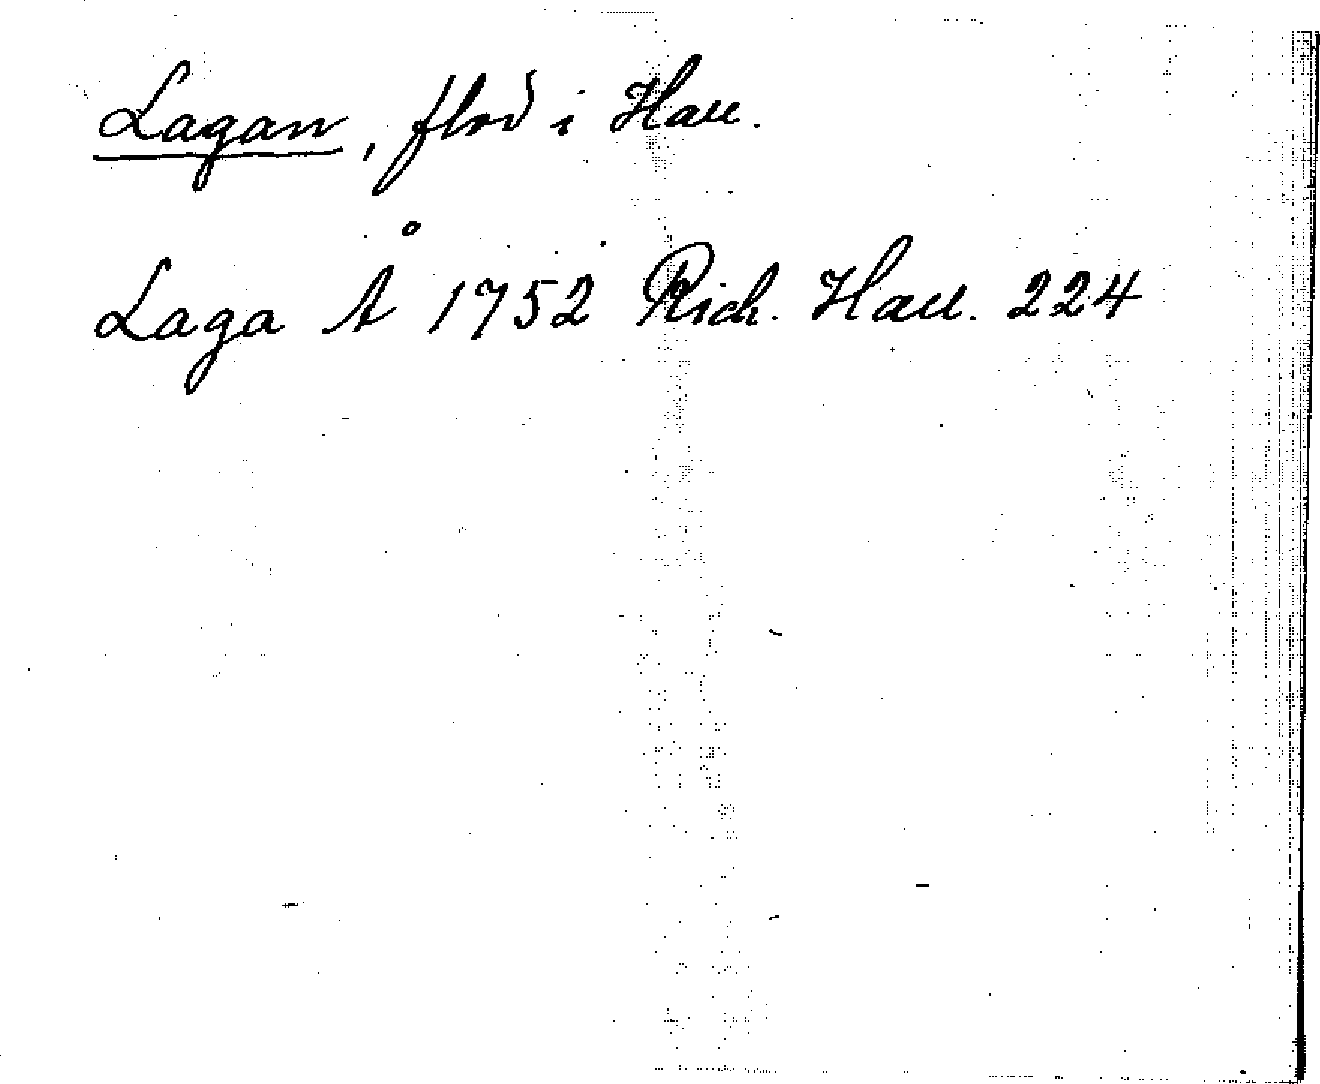 Lagan, flod i Hall.
Laga Å 1752 Rich. Hall. 224